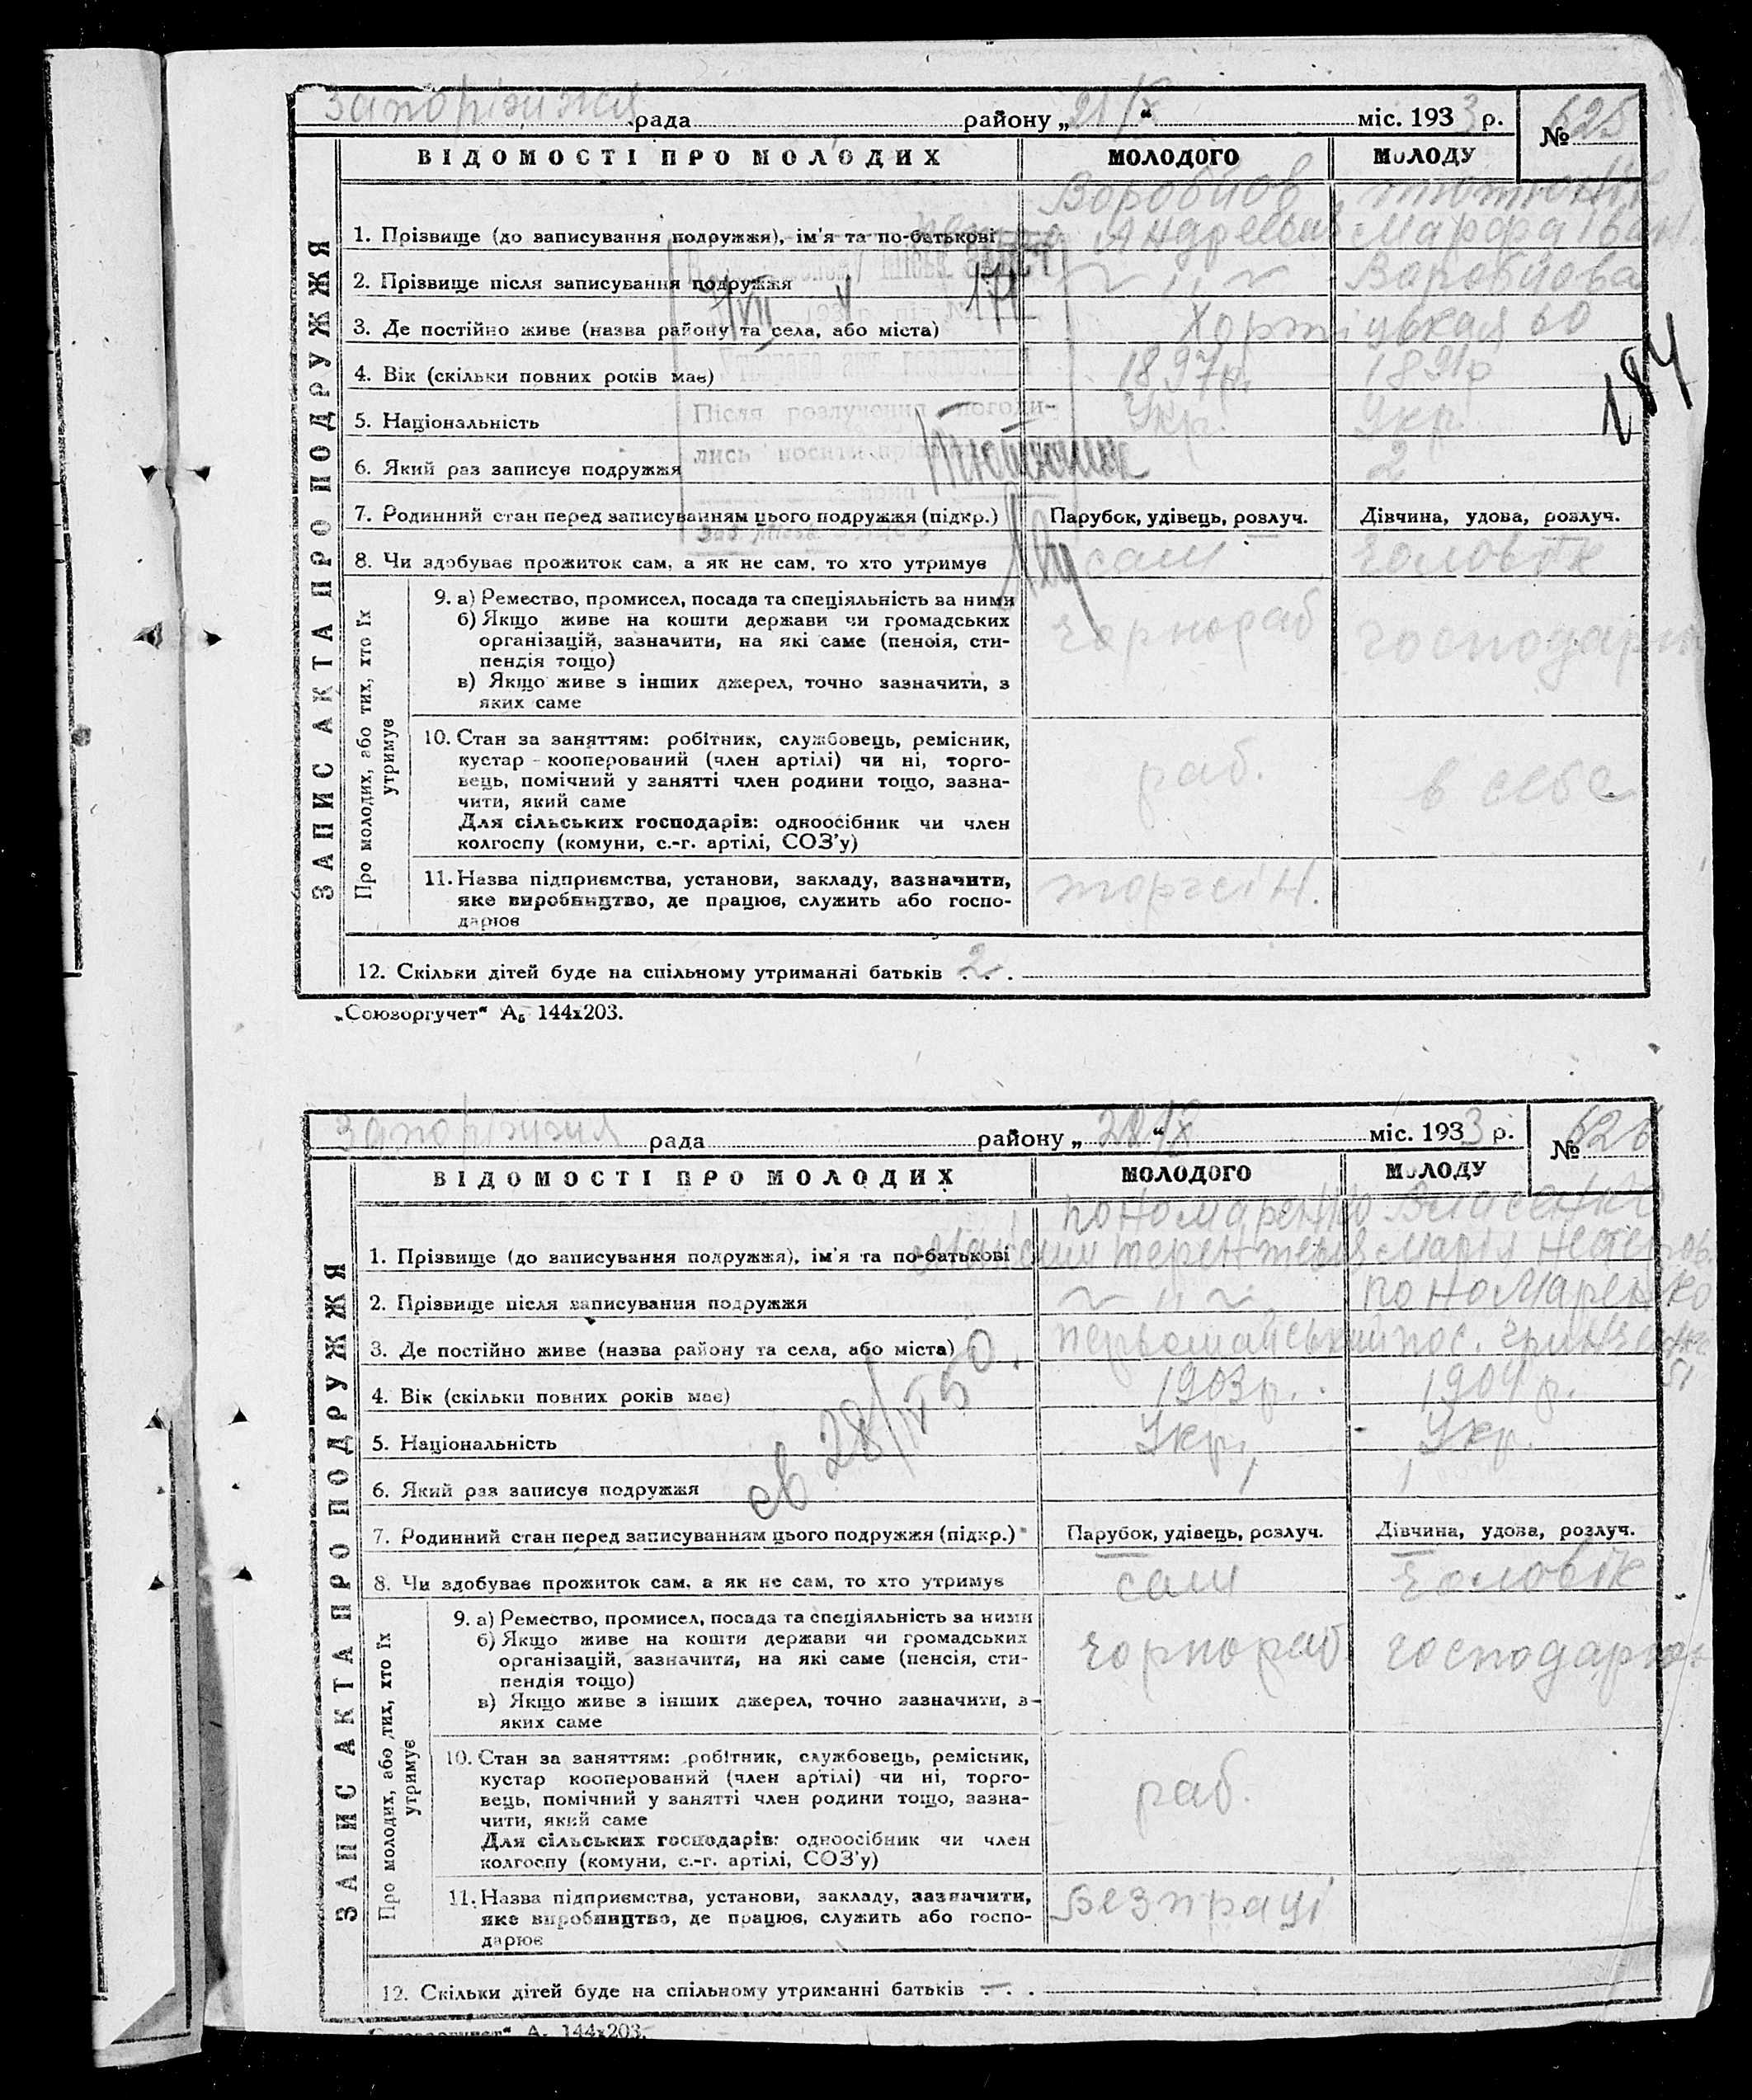 Запоріжжя рада району „21/IX“ міс. 1933 р. № 625
ВІДОМОСТІ ПРО МОЛОДИХ МОЛОДОГО МОЛОДУ
ЗАПИС АКТА ПРО ПОДРУЖЖЯ
Воробйов Тютюник
1. Прізвище (до записування подружжя), ім'я та по-батькові Марфа Іван
2. Прізвище після записування подружжя ~ „ ~ Воробйова
3. Де постійно живе (назва району та села, або міста) Хортицькая 60
4. Вік (скільки повних років має) 1897р. 1891р
184
Після розлучення погоди-
5. Національність Укр. Укр.
лись носити
6. Який раз записує подружжя 2
7. Родинний стан перед записуванням цього подружжя (підкр.) Парубок, удівець, розлуч. Дівчина, удова, розлуч.
8. Чи здобуває прожиток сам, а як не сам, то хто утримує сам чоловік
Про молодих, або тих, хто їх утримує
9. а) Ремество, промисел, посада та спеціяльність за ними
б) Якщо живе на кошти держави чи громадських чорнораб господарка
організацій, зазначити, на які саме (пенсія, сти-
пендія тощо)
в) Якщо живе з інших джерел, точно зазначити, з
яких саме
10. Стан за заняттям: робітник, службовець, ремісник,
кустар - кооперований (член артілі) чи ні, торго-
вець, помічний у занятті член родини тощо, зазна- раб. в себе
чити, який саме
Для сільських господарів: одноосібник чи член
колгоспу (комуни, с.-г. артілі, СОЗ'у)
11. Назва підприємства, установи, закладу, зазначити, торгсін.
яке виробництво, де працює, служить або госпо-
дарює
12. Скільки дітей буде на спільному утриманні батьків 2
„Союзоргучет“ А₅ 144х203.
Запоріжжя рада району „28/IX“ міс. 1933 р. № 626
ВІДОМОСТІ ПРО МОЛОДИХ МОЛОДОГО МОЛОДУ
ЗАПИС АКТА ПРО ПОДРУЖЖЯ
Пономаренко Власенко
1. Прізвище (до записування подружжя), ім'я та по-батькові Марія Нестеров
2. Прізвище після записування подружжя ~ „ ~ Пономаренко
3. Де постійно живе (назва району та села, або міста) Первомайський пос.
4. Вік (скільки повних років має) 1903р. 1904р. 51
св 28/IV 50.
5. Національність Укр. Укр.
6. Який раз записує подружжя 1 1
7. Родинний стан перед записуванням цього подружжя (підкр.) Парубок, удівець, розлуч. Дівчина, удова, розлуч.
8. Чи здобуває прожиток сам, а як не сам, то хто утримує сам чоловік
Про молодих, або тих, хто їх утримує
9. а) Ремество, промисел, посада та спеціяльність за ними
б) Якщо живе на кошти держави чи громадських чорнораб господарка
організацій, зазначити, на які саме (пенсія, сти-
пендія тощо)
в) Якщо живе з інших джерел, точно зазначити, з
яких саме
10. Стан за заняттям: робітник, службовець, ремісник,
кустар кооперований (член артілі) чи ні, торго-
вець, помічний у занятті член родини тощо, зазна- раб.
чити, який саме
Для сільських господарів: одноосібник чи член
колгоспу (комуни, с.-г. артілі, СОЗ'у)
11. Назва підприємства, установи, закладу, зазначити, Безпраці
яке виробництво, де працює, служить або госпо-
дарює
12. Скільки дітей буде на спільному утриманні батьків –
„Союзоргучет“ А₅ 144х203.